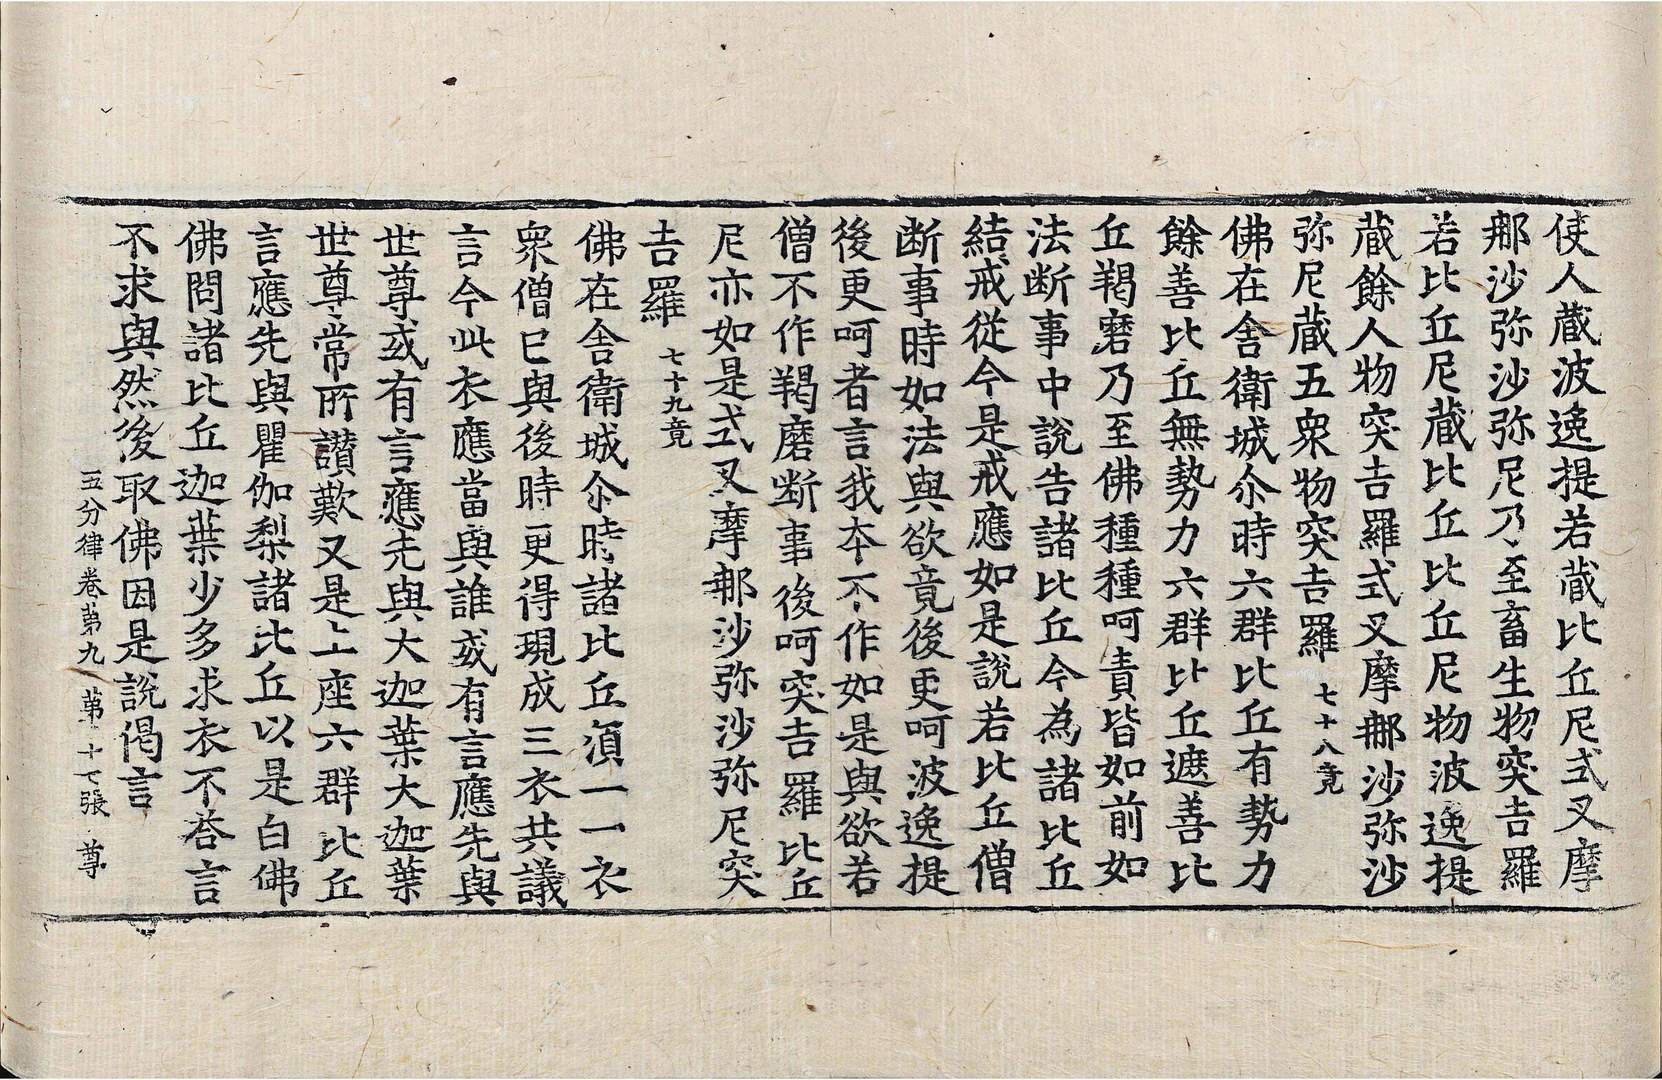 使人藏波逸提若藏比丘尼式叉摩
那沙弥沙弥尼乃至畜生物突吉羅
若比丘尼藏比丘比丘尼物波逸提
藏餘人物突吉羅式叉摩那沙弥沙
弥尼藏五衆物突吉羅 七十八竟
佛在舍衛城尒時六群比丘有勢力
餘善比丘無勢力六群比丘遮善比
丘羯磨乃至佛種種呵責皆如前如
法断事中說告諸比丘今為諸比丘
結戒從今是戒應如是說若比丘僧
断事時如法與欲竟後更呵波逸提
後更呵者言我本不作如是與欲若
僧不作羯磨断事後呵突吉羅比丘
尼亦如是式叉摩那沙弥沙弥尼突
吉羅 七十九竟
佛在舍衛城尒時諸比丘湏一一衣
衆僧已與後時更得現成三衣共議
言今此衣應當與誰或有言應先與
世尊或有言應先與大迦葉大迦葉
世尊常所讃歎又是上座六群比丘
言應先與瞿伽梨諸比丘以是白佛
佛問諸比丘迦葉少多求衣不荅言
不求與然後取佛因是說偈言
五分律卷第九 第十七張 尊